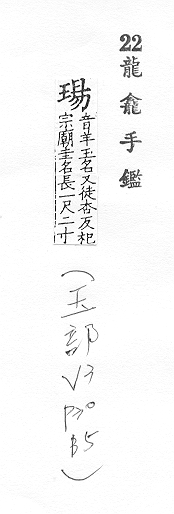 22 龍龕手鑑
瑒
音羊玉名又徒杏反祀
宗廟圭名長一尺二寸
(玉部 V3